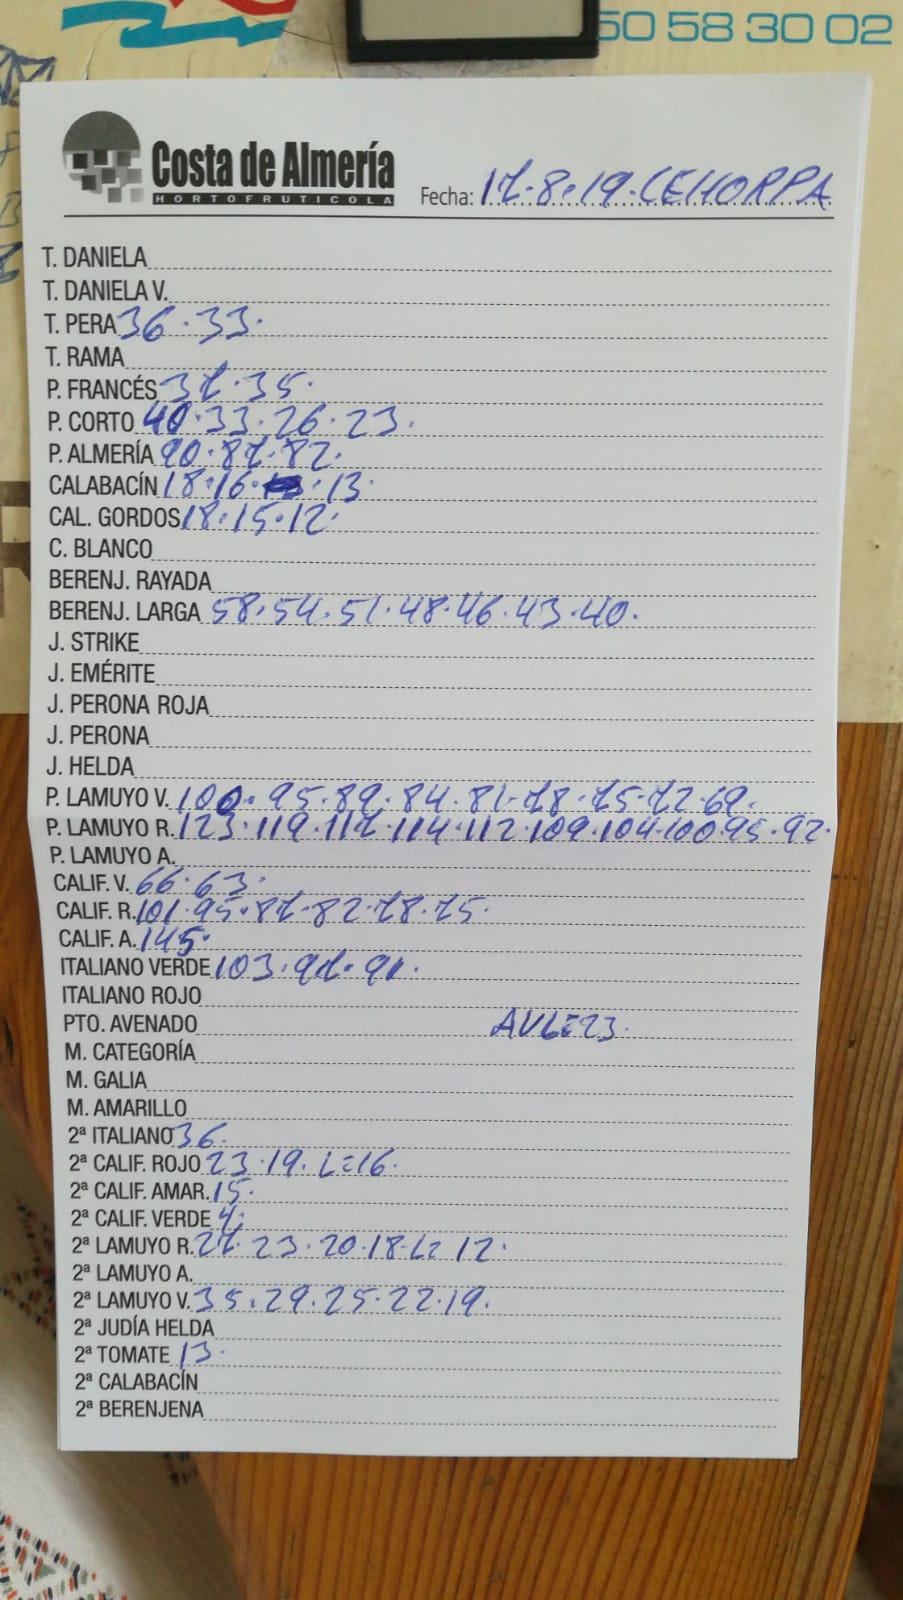 50 58 30 02
Costa de Almería
HORTOFRUTICOLA
Fecha: 17.8.19.CEHORPA
T. DANIELA
T. DANIELA V.
T. PERA 36.33.
T. RAMA
P. FRANCÉS 37.35.
P. CORTO 40.33.26.23.
P. ALMERÍA 90.87.82.
CALABACÍN 18.16. .13.
CAL. GORDOS 18.15.12.
C. BLANCO
BERENJ. RAYADA
BERENJ. LARGA 58.54.51.48.46.43.40.
J. STRIKE
J. EMÉRITE
J. PERONA ROJA
J. PERONA
J. HELDA
P. LAMUYO V. 100.95.89.84.81.78.75.72.69.
P. LAMUYO R. 123.119.117.114.112.109.104.100.95.92.
P. LAMUYO A.
CALIF. V. 66.63.
CALIF. R. 101.95.87.82.78.75.
CALIF. A. 145.
ITALIANO VERDE 103.97.91.
ITALIANO ROJO
PTO. AVENADO AVL=23.
M. CATEGORÍA
M. GALIA
M. AMARILLO
2ª ITALIANO 36.
2ª CALIF. ROJO 23.19.L=16.
2ª CALIF. AMAR. 15.
2ª CALIF. VERDE 4.
2ª LAMUYO R. 27.23.20.18.L=12.
2ª LAMUYO A.
2ª LAMUYO V. 35.29.25.22.19.
2ª JUDÍA HELDA
2ª TOMATE 13.
2ª CALABACÍN
2ª BERENJENA